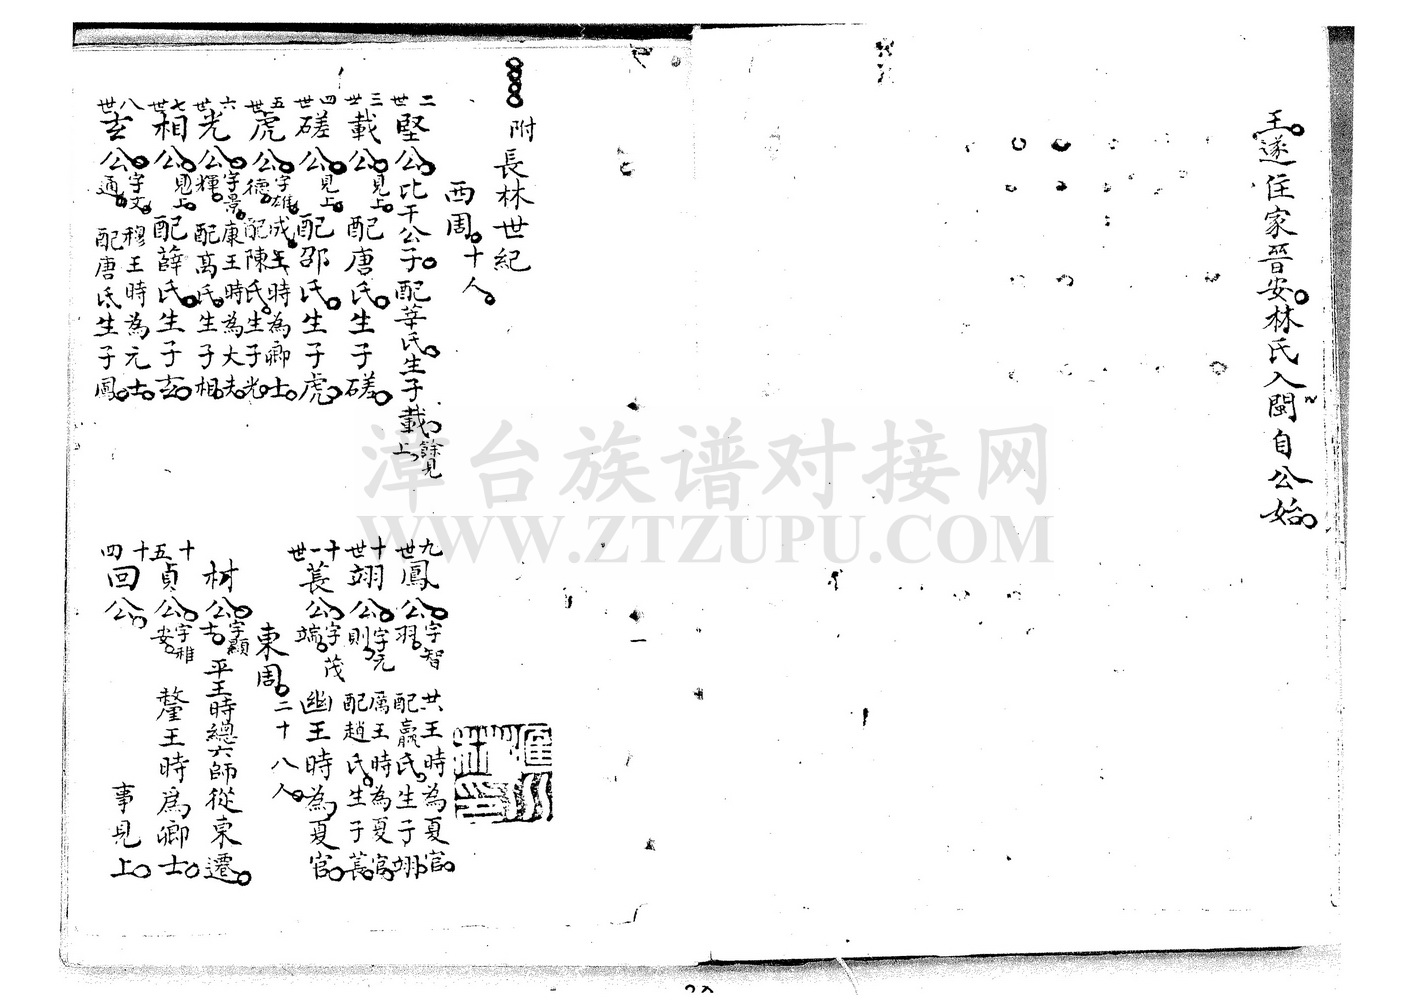 王遂住家晉安林氏入閩自公始
附長林世紀
西周十人
二世堅公比干公子配莘氏生子載餘見上
三世載公見上配唐氏生子磋
四世磋公見上配邵氏生子虎
五世虎公字雄德成王時為卿士配陳氏生子光
六世光公字景輝康王時為大夫配高氏生子相
七世相公見上配薛氏生子玄
八世玄公字文通穆王時為元士配唐氏生子鳳
九世鳳公字智羽共王時為夏官配嬴氏生子翊
十世翊公字元則厲王時為夏官配趙氏生子萇
十一世萇公字茂端幽王時為夏官
東周二十八人
材公字顯吉平王時總六師從東遷
十五貞公字雅安釐王時為卿士
十四回公事見上
漳台族谱对接网
WWW.ZTZUPU.COM